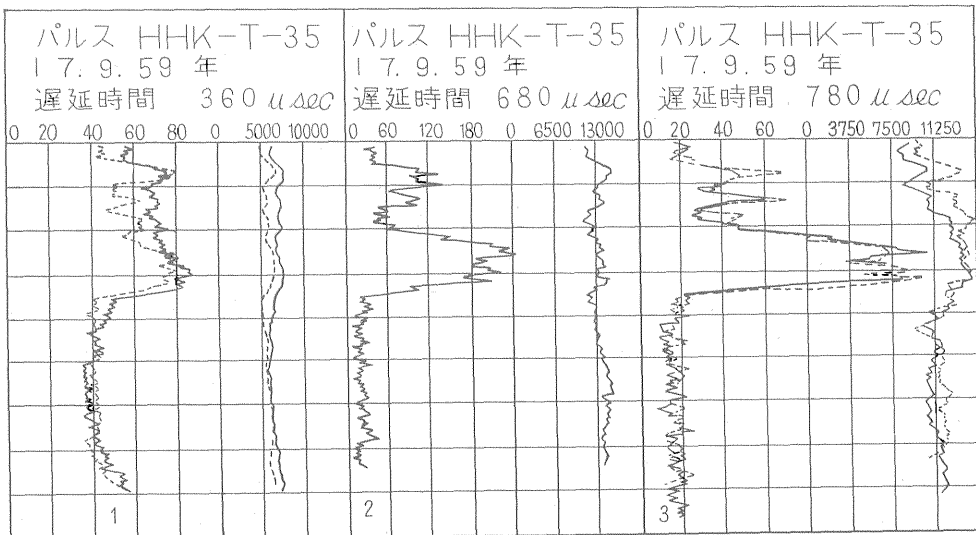 パルス HHK-T-35
17.9.59 年
遅延時間 360 μsec
0 20 40 60 80 0 5000 10000
1
パルス HHK-T-35
17.9.59 年
遅延時間 680 μsec
0 60 120 180 0 6500 13000
2
パルス HHK-T-35
17.9.59 年
遅延時間 780 μsec
0 20 40 60 0 3750 7500 11250
3